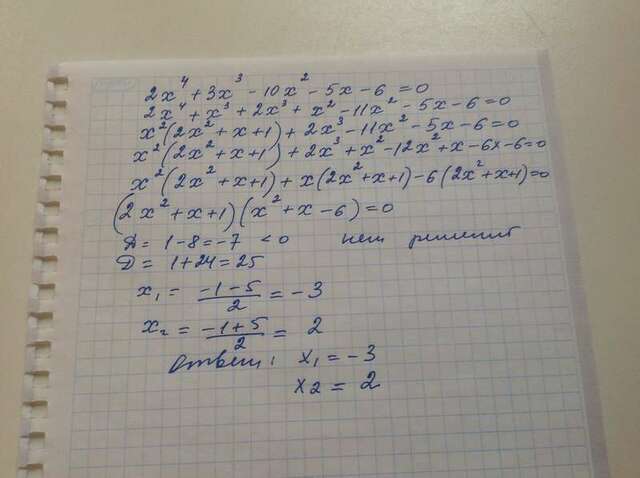 2x⁴ + 3x³ - 10x² - 5x - 6 = 0
2x⁴ + x³ + 2x³ + x² - 11x² - 5x - 6 = 0
x²(2x² + x + 1) + 2x³ - 11x² - 5x - 6 = 0
x²(2x² + x + 1) + 2x³ + x² - 12x² + x - 6x - 6 = 0
x²(2x² + x + 1) + x(2x² + x + 1) - 6(2x² + x + 1) = 0
(2x² + x + 1)(x² + x - 6) = 0
Д = 1 - 8 = -7 < 0 нет решений
Д = 1 + 24 = 25
x₁ = (-1 - 5)/2 = -3
x₂ = (-1 + 5)/2 = 2
Ответ: x₁ = -3
x2 = 2